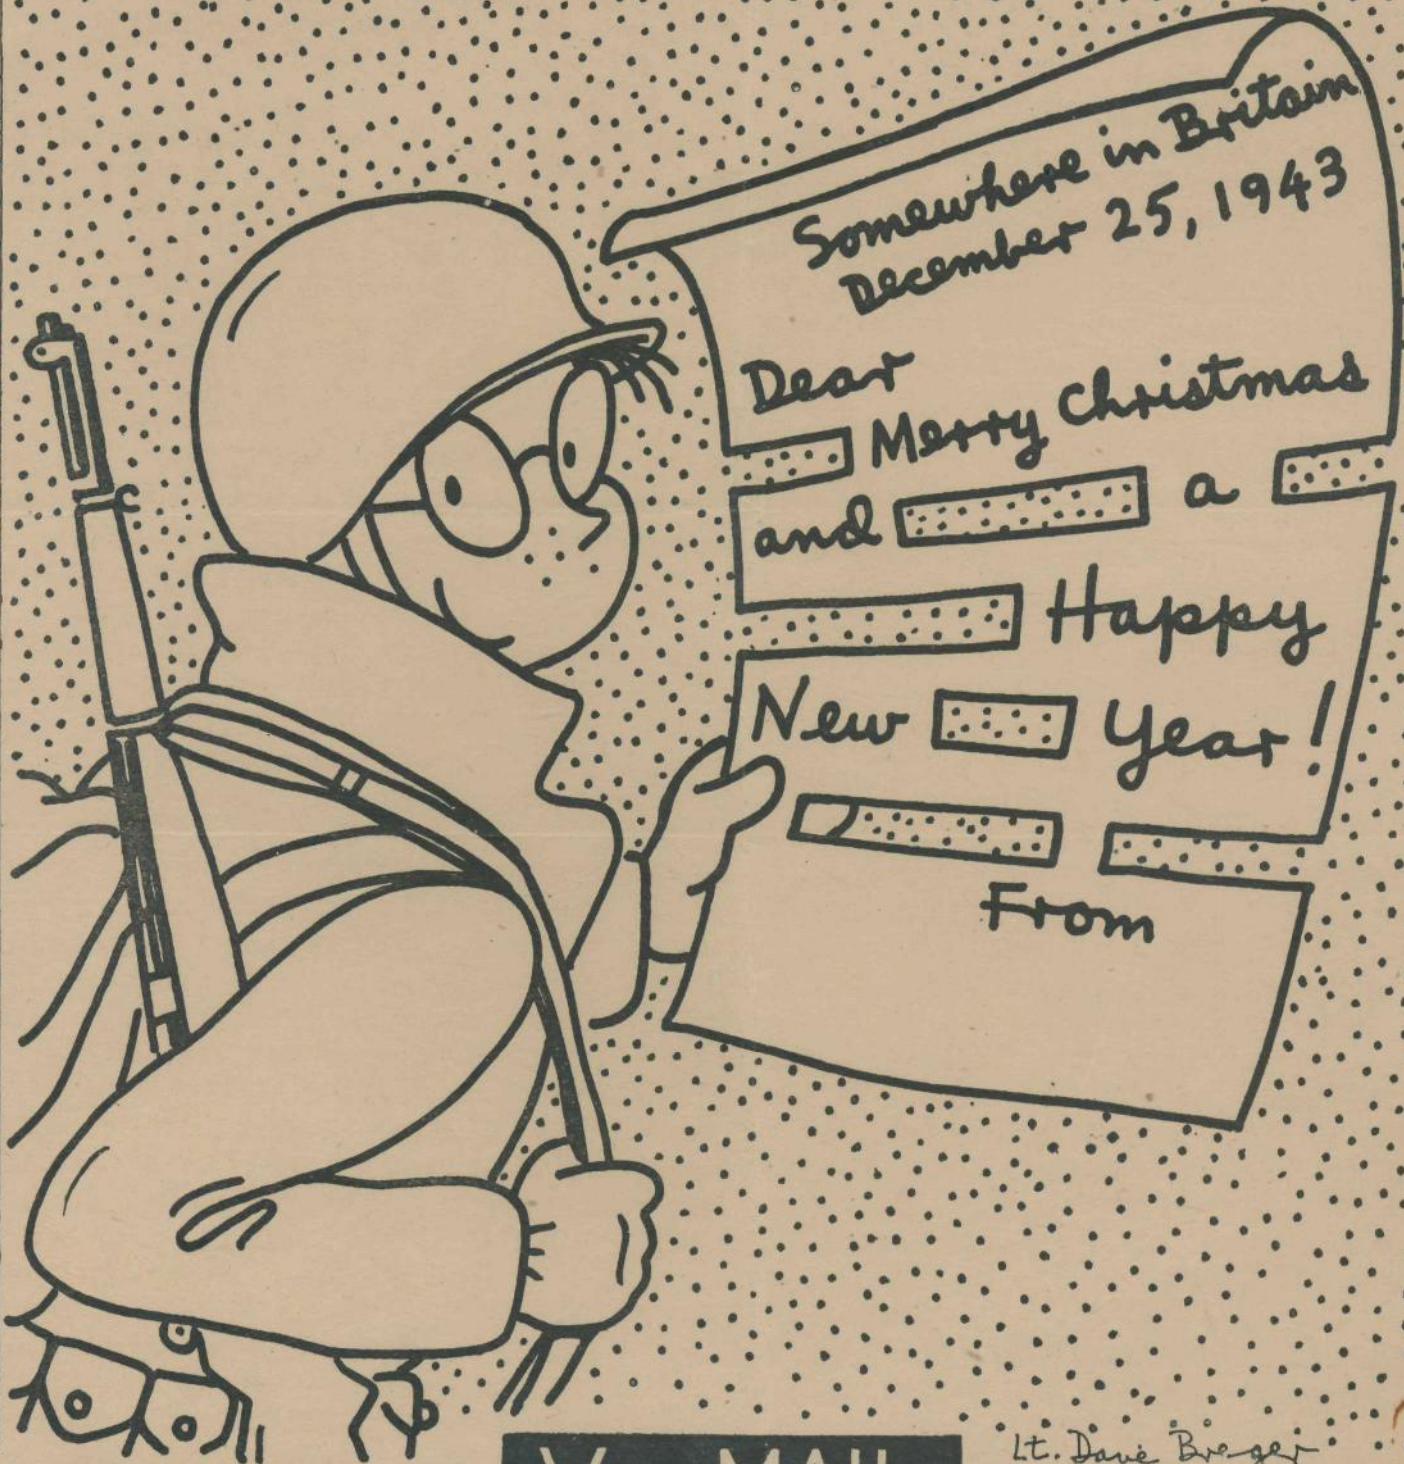 Somewhere in Britain
December 25, 1943
Dear
Merry Christmas
and a
Happy
New Year!
From
V-MAIL
Lt. Dave Breger